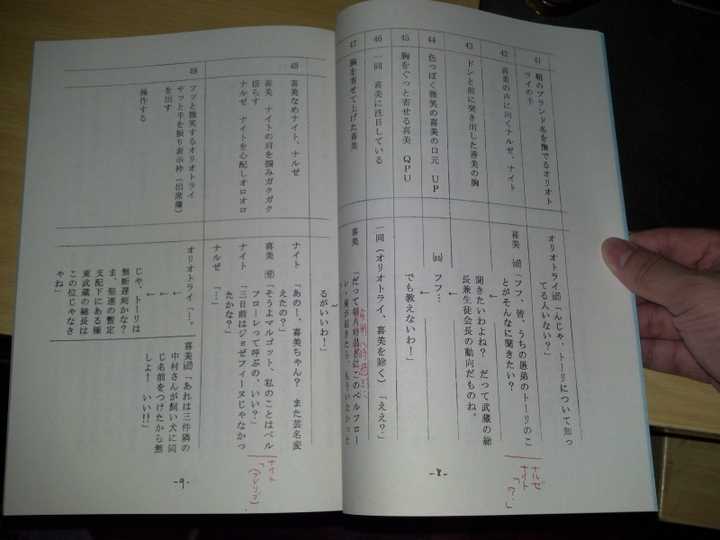 41
鞘のブランド名を撫でるオリオト
ライの手
オリオトライ
「んじゃ、トーリについて知っ
てる人いない?」
42
喜美の声に向くナルゼ、ナイト
喜美
「フフ、皆、うちの愚弟のトーリのこ
とがそんなに聞きたい?
ナルゼ
ナイト「?」
43
ドンと前に突き出した喜美の胸
聞きたいわよね? だって武蔵の総
長兼生徒会長の動向だものね。
44
色っぽく微笑の喜美の口元 UP
フフ…
45
胸をぐっと寄せる喜美 QPU
でも教えないわ!」
46
一同 喜美に注目している
一同(オリオトライ、喜美を除く)「ええ?」
47
胸を寄せて上げた喜美
喜美
「だって朝八時過ぎにこのベルフロー
-8-
るがいいわ!」
48
喜美なめナイト、ナルゼ
喜美 ナイトの肩を掴みガクガク
揺らす
ナルゼ ナイトを心配しオロオロ
ナイト
「あのー、喜美ちゃん? また芸名変
えたの?」
喜美
「そうよマルゴット、私のことはベル
フローレって呼ぶの、いい?」
ナイト
「三日前はジョゼフィーヌじゃなかっ
たかな?」
ナイト
(アドリブ)
ナルゼ
「…」
喜美
「あれは三件隣の
中村さんが飼い犬に同
じ名前をつけたから無
しよ! いい!!」
49
フッと微笑するオリオトライ
サッと手を振り表示枠(出席簿)
を出す
操作する
オリオトライ「…。
じゃ、トーリは
無断遅刻かな?
ま、聖連の暫定
支配下にある極
東武蔵の総長は
この位じゃなき
ゃね」
-9-